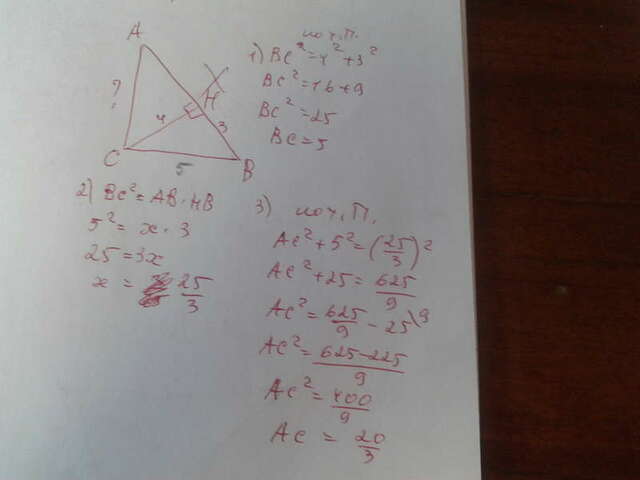 A
?
H
4
3
C
5
B
по т. П.
1) BC² = 4² + 3²
BC² = 16 + 9
BC² = 25
BC = 5
2) BC² = AB · HB
5² = x · 3
25 = 3x
x = 25/3
3) по т. П.
AC² + 5² = (25/3)²
AC² + 25 = 625/9
AC² = 625/9 - 25\9
AC² = 625-225/9
AC² = 400/9
AC = 20/3